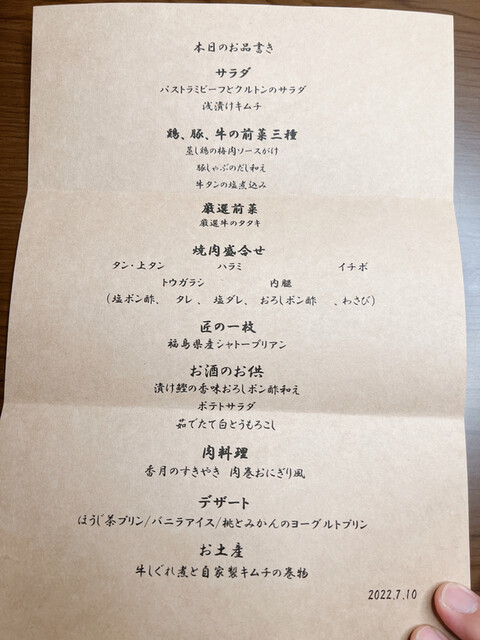 本日のお品書き
サラダ
パストラミビーフとクルトンのサラダ
浅漬けキムチ
鶏、豚、牛の前菜三種
蒸し鶏の梅肉ソースがけ
豚しゃぶのだし和え
牛タンの塩煮込み
厳選前菜
厳選牛のタタキ
焼肉盛合せ
タン・上タン ハラミ イチボ
トウガラシ 内腿
(塩ポン酢、 タレ 、 塩ダレ、 おろしポン酢 、わさび)
匠の一枚
福島県産シャトーブリアン
お酒のお供
漬け鰹の香味おろしポン酢和え
ポテトサラダ
茹でたて白とうもろこし
肉料理
香月のすきやき 肉巻おにぎり風
デザート
ほうじ茶プリン/バニラアイス/桃とみかんのヨーグルトプリン
お土産
牛しぐれ煮と自家製キムチの巻物
2022.7.10